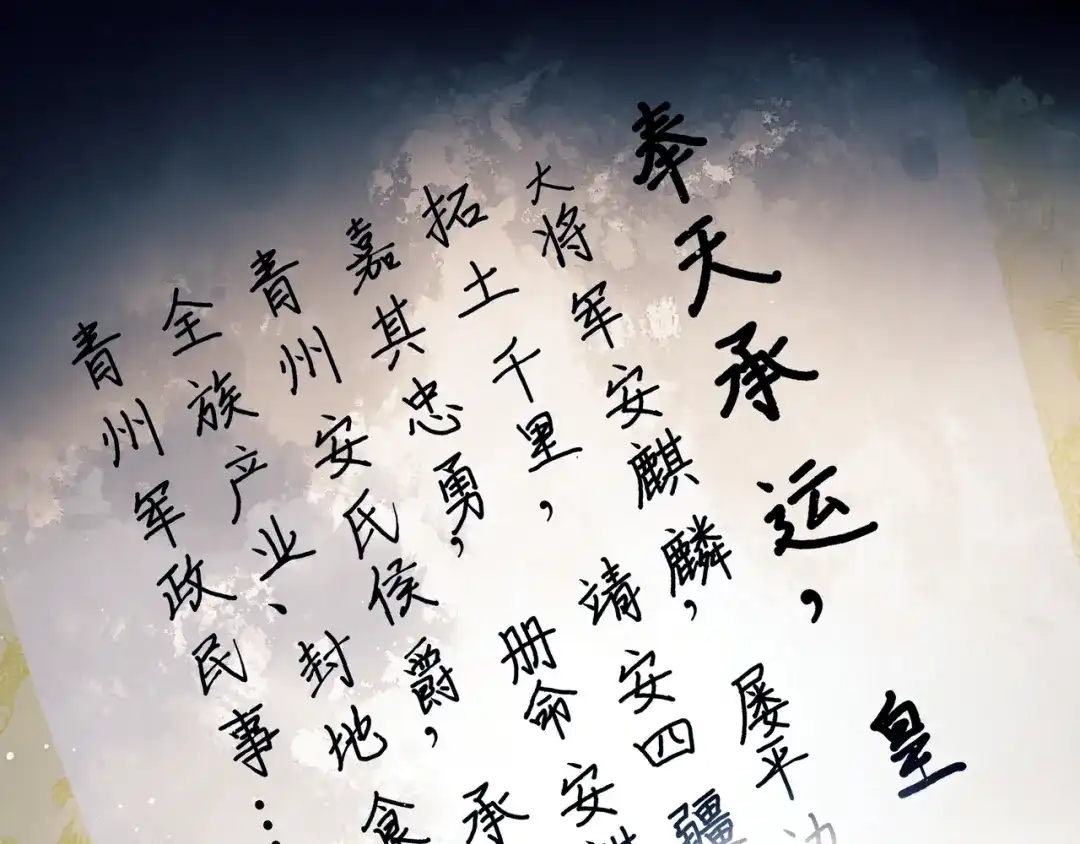 奉天承运，皇
大将军安麒麟，屡平
拓土千里，靖安四疆
嘉其忠勇，册命安
青州安氏侯爵，承
全族产业、封地食
青州军政民事…